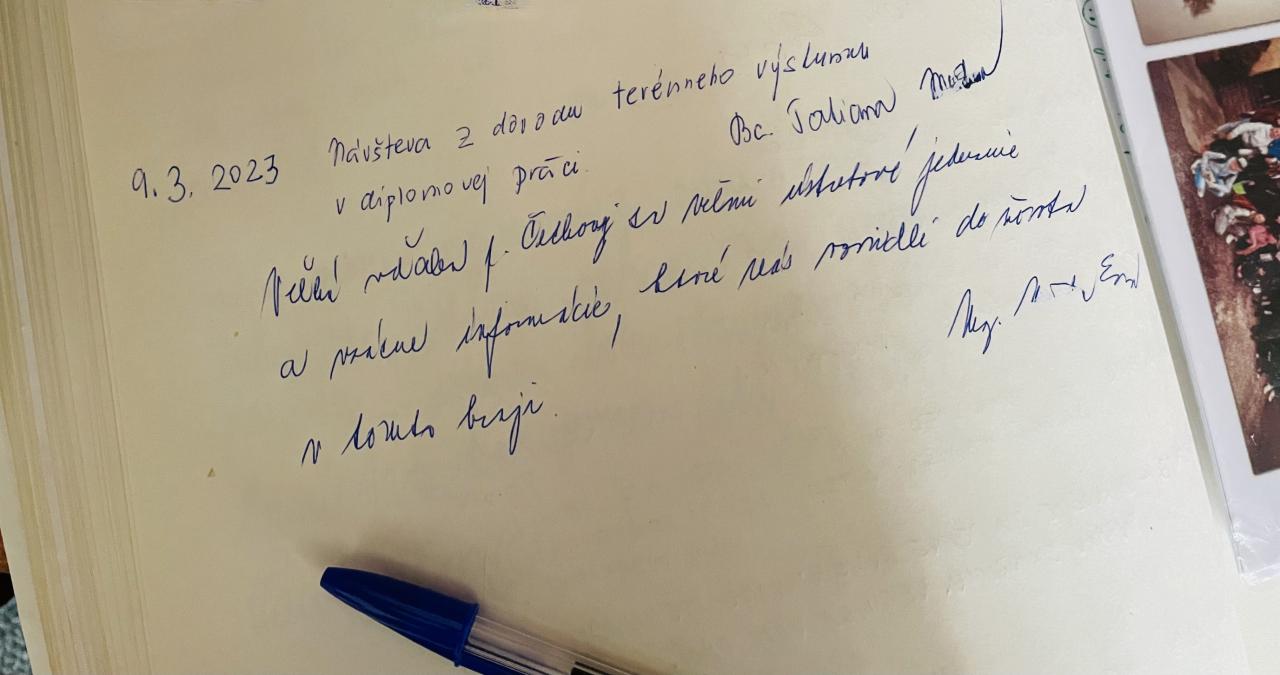 9. 3. 2023 Návšteva z dôvodu terénneho výskumu
v diplomovej práci. Bc. Tatiana
Veľká vďaka p. Čechovej za veľmi ústretové jednanie
a vzácne informácie, ktoré nás vovedli do života
v tomto kraji. Mgr.